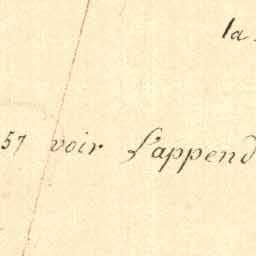 la
57 voir L'append